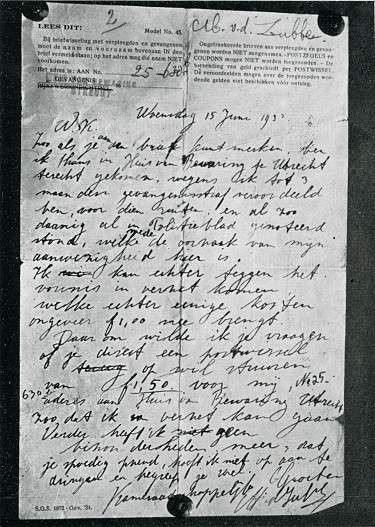 LEES DIT:
2
Model No. 45.
M. v.d. Lubbe
Bij briefwisseling met verpleegden en gevangenen
moet de naam en voornaam bovenaan IN den
brief vermeld staan; op het adres mag die naam NIET
voorkomen.
Het adres is: AAN No.
25-630
GEVANGENIS
Ongefrankeerde brieven aan verpleegden en gevan-
genen worden NIET aangenomen. POSTZEGELS en
COUPONS mogen NIET worden toegezonden. De
toezending van geld geschiedt per POSTWISSEL.
De veroordeelden mogen over de toegezonden wor-
dende gelden niet beschikken vóór ontslag.
UTRECHT
Woensdag 15 Juni 1932
W.K.
Zoo als je aan den brief kunt merken, ben
ik thans in Huis van Bewaring te Utrecht
terecht gekomen, wegens ik tot 3
maanden gevangenisstraf veroordeeld
ben, voor dien ruiten, en al zoo
danig al in Politieblad genoteerd
stond, welke de oorzaak van mijn
aanwezigheid hier is.
Ik kan echter tegen het
vonnis in verzet komen
welke echter eenige kosten
ongeveer f 1,00 mee brengt.
Daarom wilde ik je vragen
of je direct een postwissel
op wil sturen
van f 1,50 voor mij, No 25-
630 aan Huis van Bewaring Utrecht
zoo, dat ik in verzet kan gaan
Verder heeft ik geen
bijzonderheden meer, dat
je spoedig zend, hoeft ik niet op aan te
dringen en begreep je wel. Groeten
Kameraadschappelijk
S.G.S. 1072 - Gev. '31.